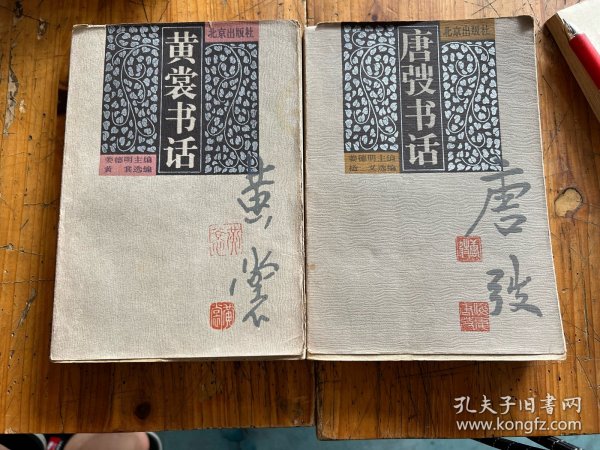 北京出版社
黄裳书话
姜德明主编
黄裳
北京出版社
唐弢书话
姜德明主编
唐弢
孔夫子旧书网
www.kongfz.com